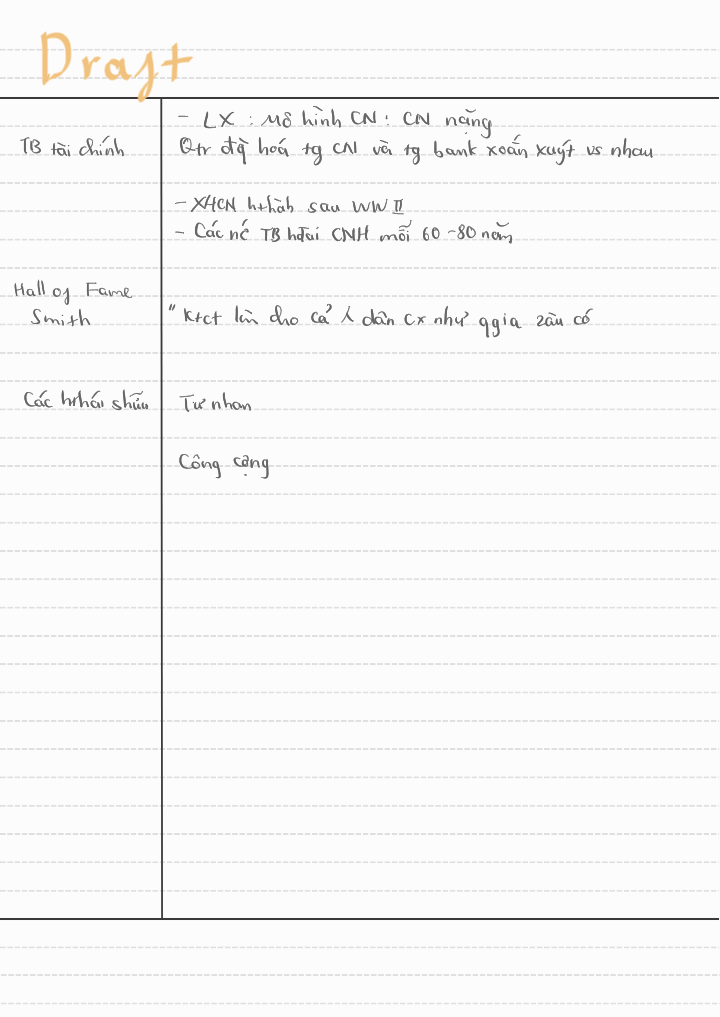 Draft
- LX : Mô hình CN : CN nặng
TB tài chính
Qtr đq̀ hoá tg CN và tg bank xoắn xuýt vs nhau
- XHCN hthàh sau WW II
- Các nć TB hđại CNH mỗi 60 -80 năm
Hall of Fame
Smith
" Ktct làm cho cả dân cx như qgia zàu có
Các hthái shữu
Tư nhan
Công cộng